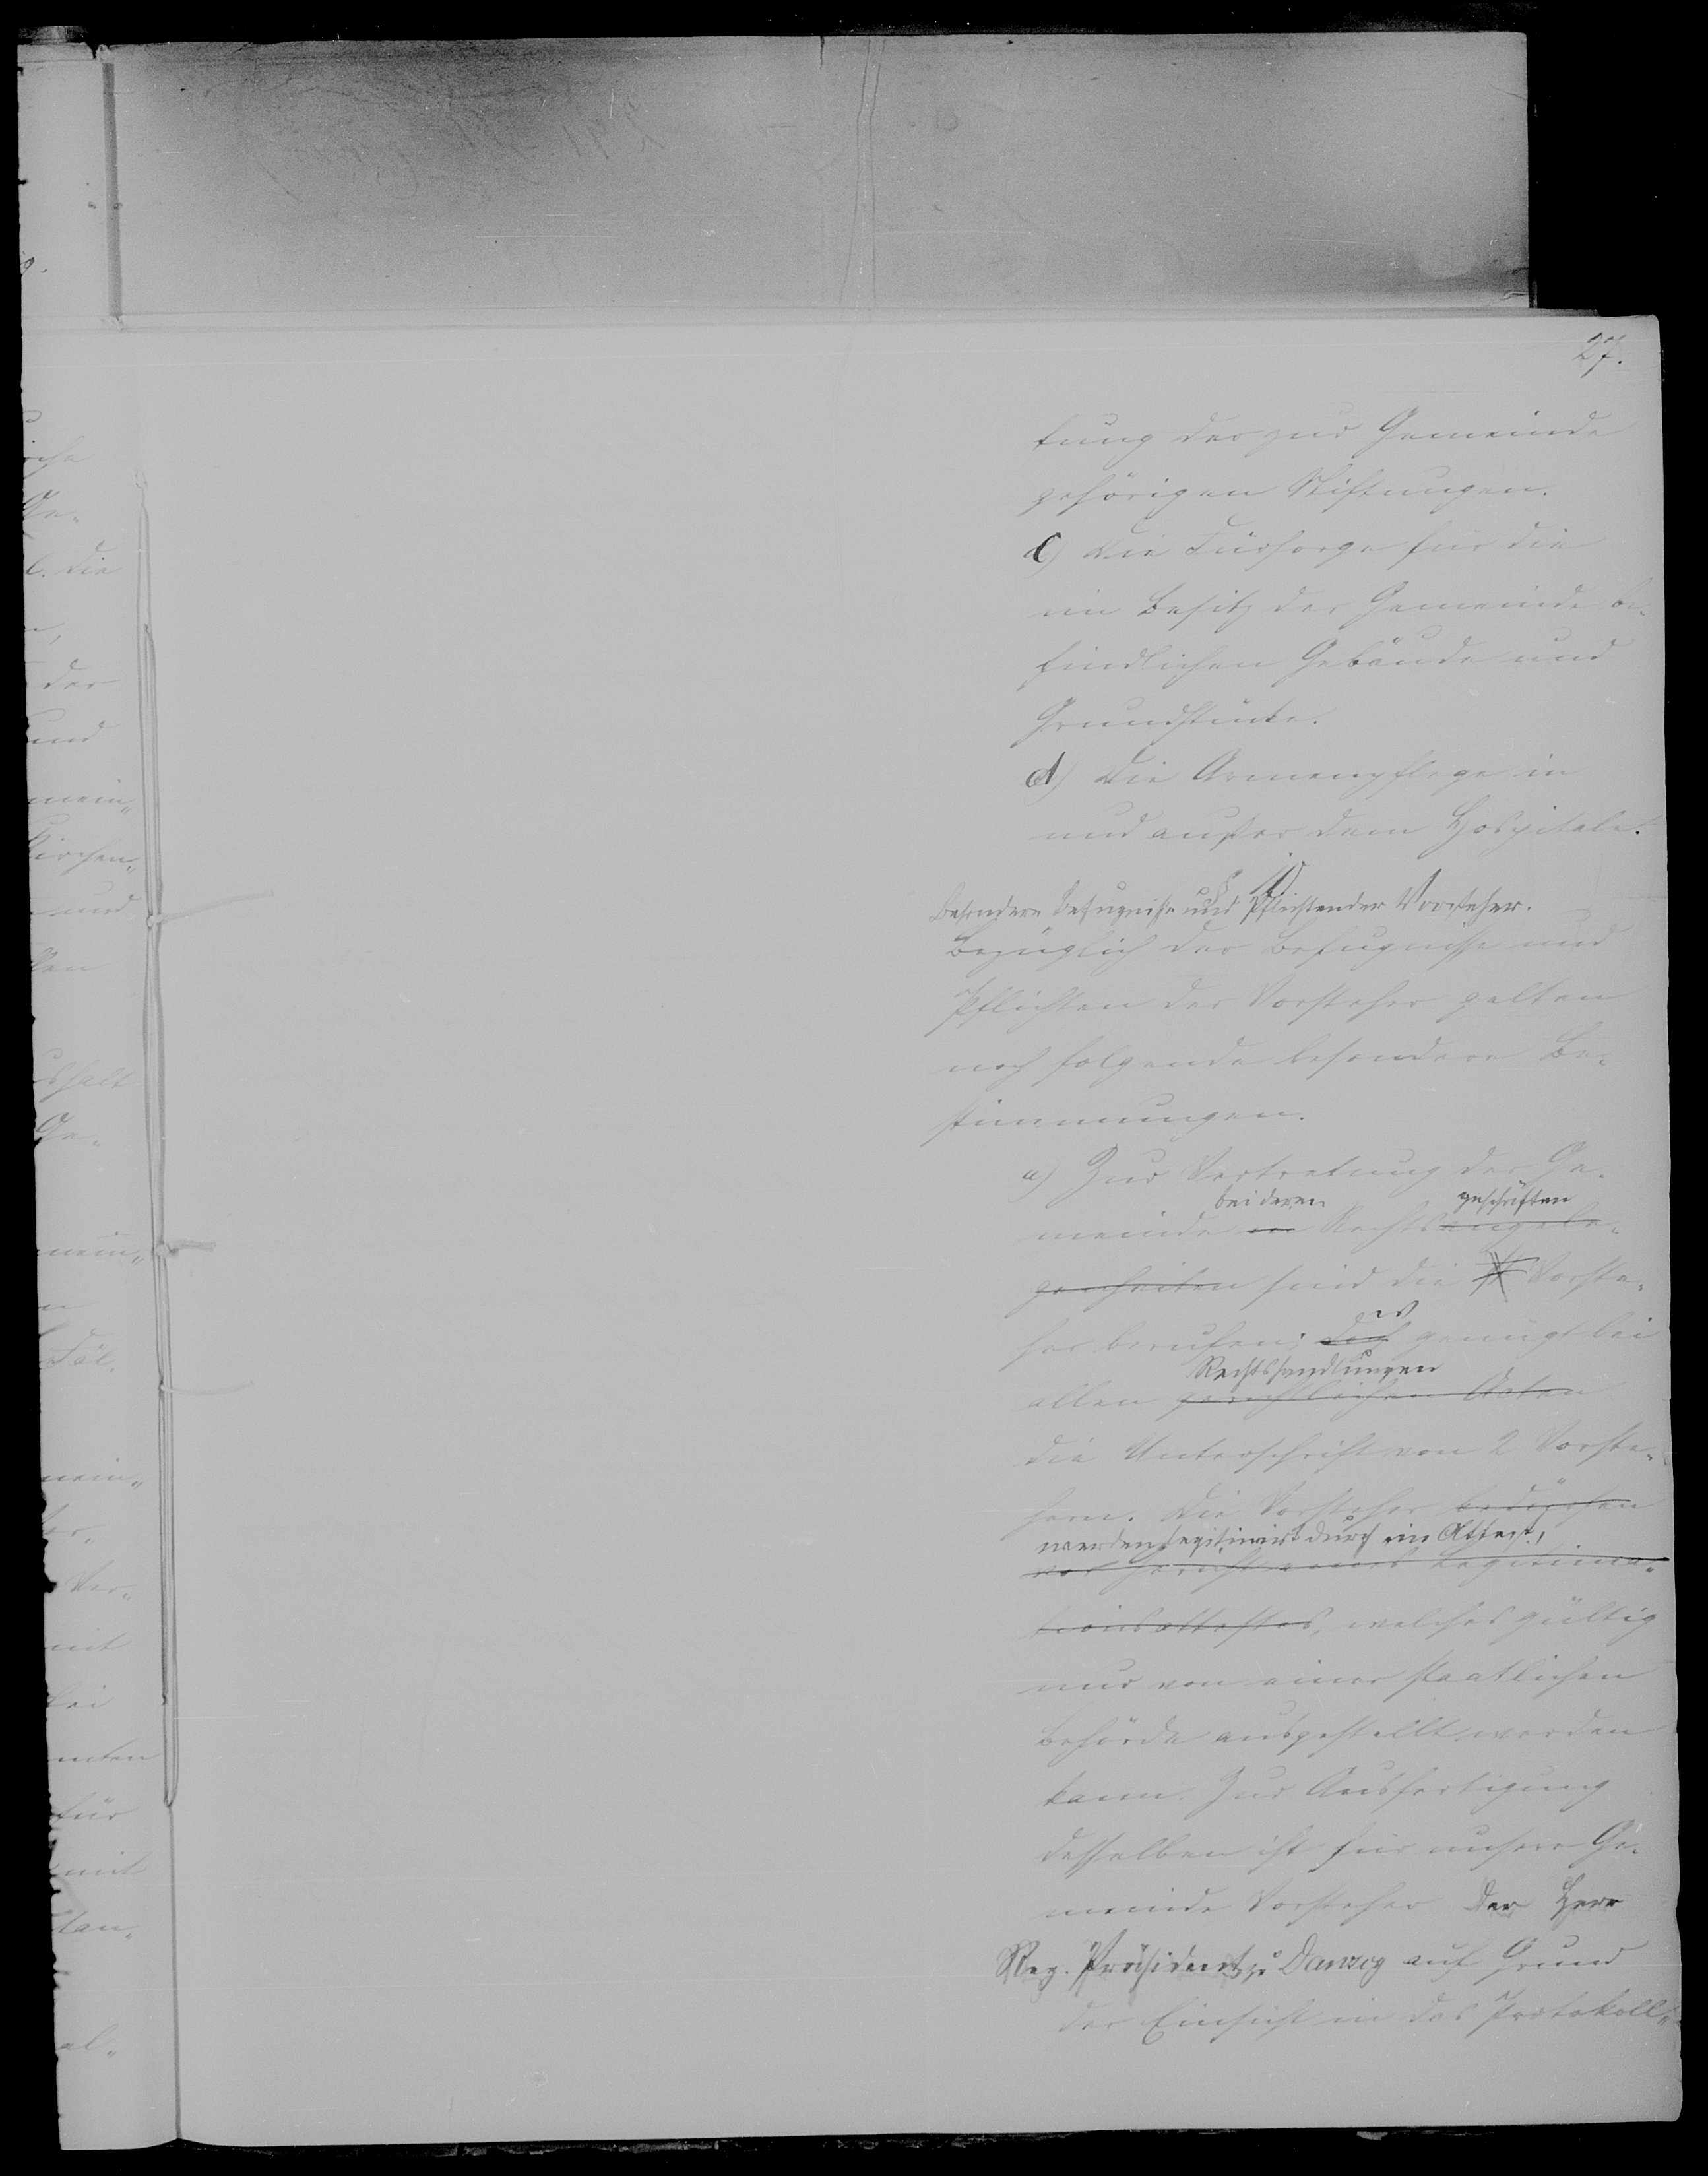 27.
tung der zur Gemeinde
gehörigen Stiftungen.
c) Die Fürsorge für die
im Besitz der Gemeinde be-
findlichen Gebäude und
Grundstücke.
d) Die Armenpflege in
und außer dem Hospitale.
§ 10
Besondere Befugnisse und Pflichten der Vorsteher.
Bezüglich der Befugnisse und
Pflichten der Vorsteher gelten
noch folgende besondere Be-
stimmungen.
a) Zur Vertretung der Ge-
bei deren geschäften
meinde in Rechtsangele-
genheiten sind die Vorste-
es
her berufen; doch genügt bei
Rechtshandlungen
allen gerichtlichen Akten
die Unterschrift von 2 Vorste-
hern. Die Vorsteher bedürfen
werden legitimirt durch ein Attest,
vor Gericht eines Legitima-
tionsattestes, welches gültig
nur von einer staatlichen
Behörde ausgestellt werden
kann. Zur Ausfertigung
desselben ist für unsere Ge-
meinde Vorsteher Der Herr
Reg. Präsident zu Danzig auf Grund
der Einsicht in das Protokoll-